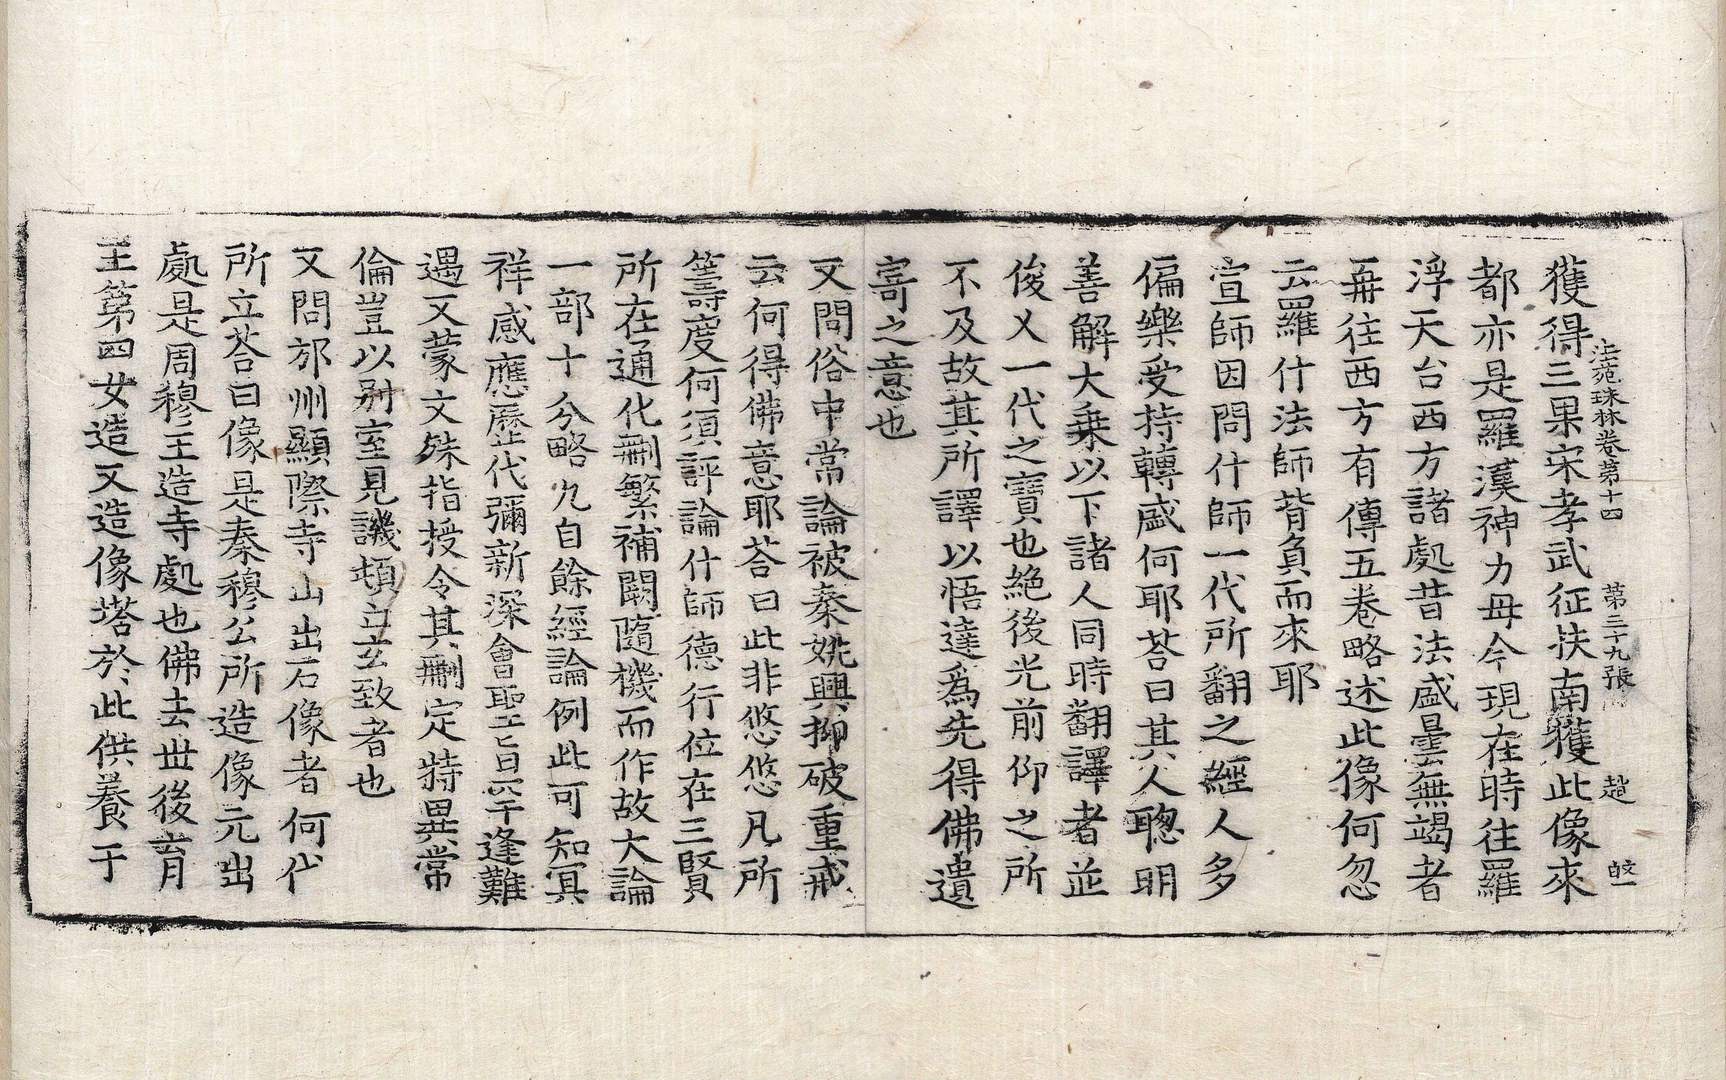 法苑珠林卷第十四 第三十九張 趙 啟一
獲得三果宋孝武征扶南獲此像來
都亦是羅漢神力母今現在時往羅
浮天台西方諸處昔法盛曇無竭者
再往西方有傳五卷略述此像何忽
云羅什法師背負而來耶
宣師因問什師一代所翻之經人多
偏樂受持轉盛何耶荅曰其人聰明
善解大乗以下諸人同時翻譯者並
俊乂一代之寶也絕後光前仰之所
不及故其所譯以悟達爲先得佛遺
寄之意也
又問俗中常論被秦姚興抑破重戒
云何得佛意耶荅曰此非悠悠凡所
籌度何須評論什師德行位在三賢
所在通化刪繁補闕隨機而作故大論
一部十分略九自餘經論例此可知冥
祥感應歷代彌新深會聖旨罕逢難
遇又蒙文殊指授令其刪定特異常
倫豈以別室見譏頓亡玄致者也
又問邡州顯際寺山出石像者何代
所立荅曰像是秦穆公所造像元出
處是周穆王造寺處也佛去世後育
王第四女造又造像塔於此供養于